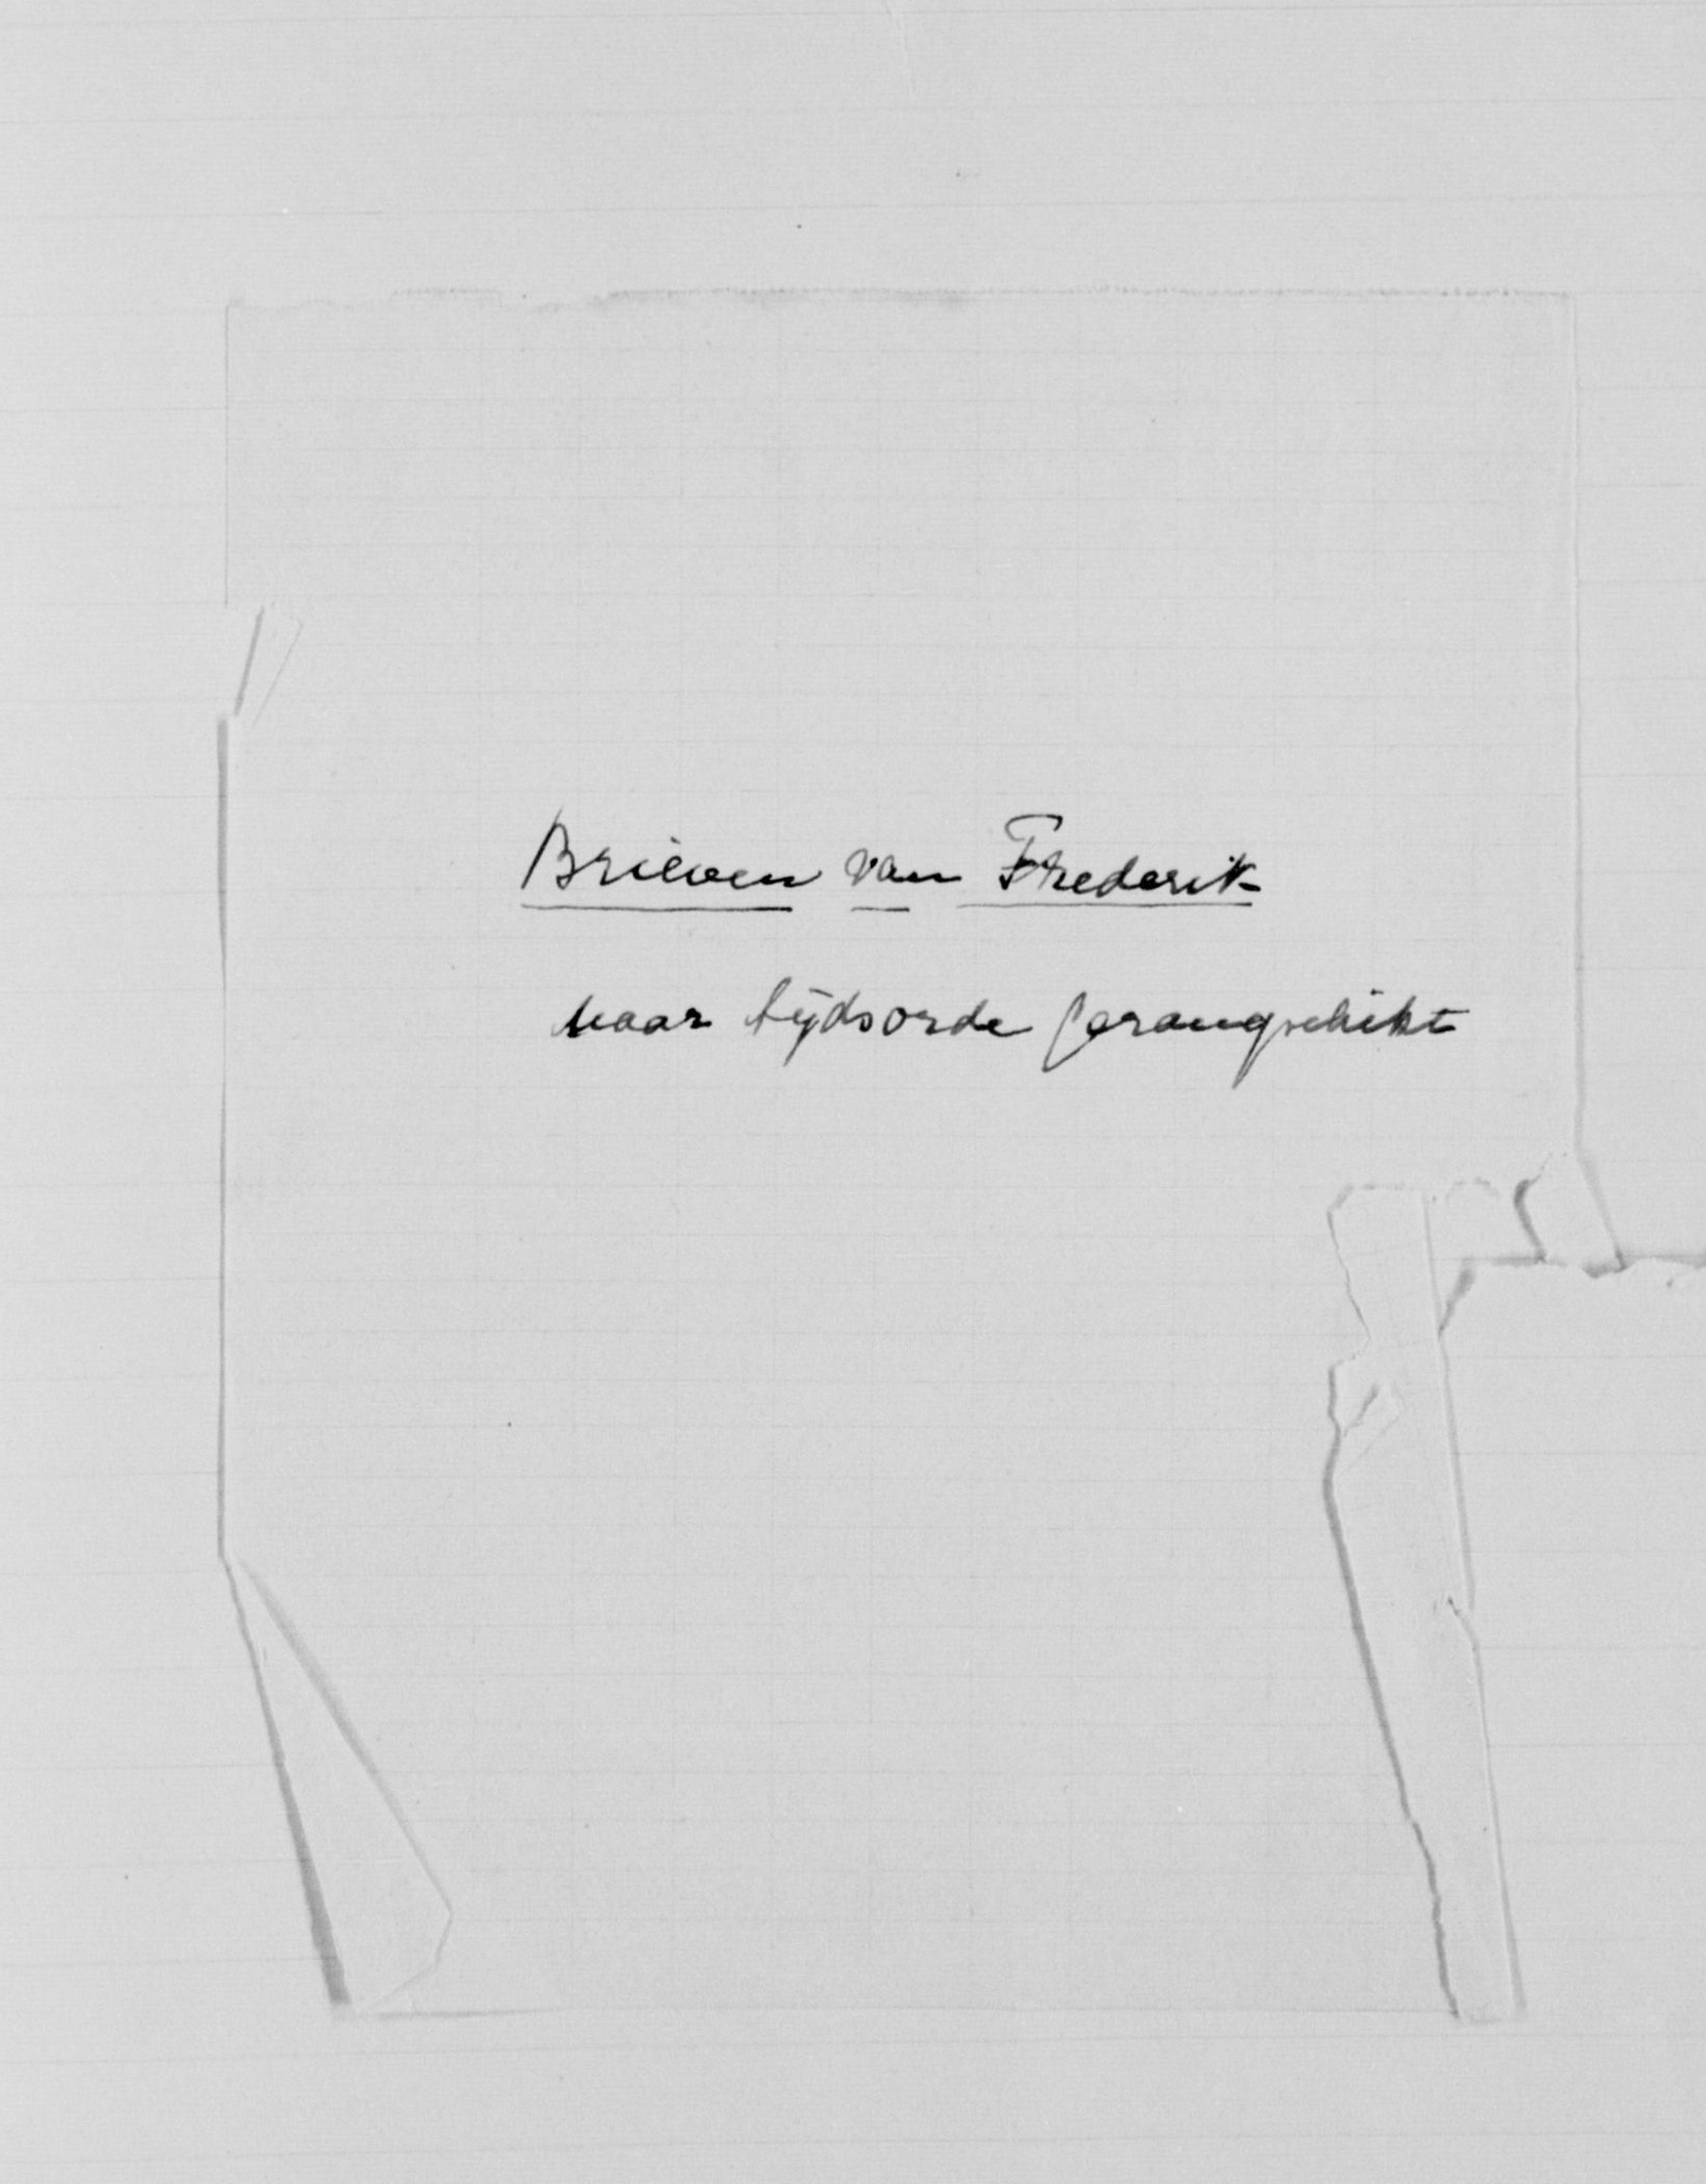 Brieven van Frederik
naar tijdsorde gerangschikt